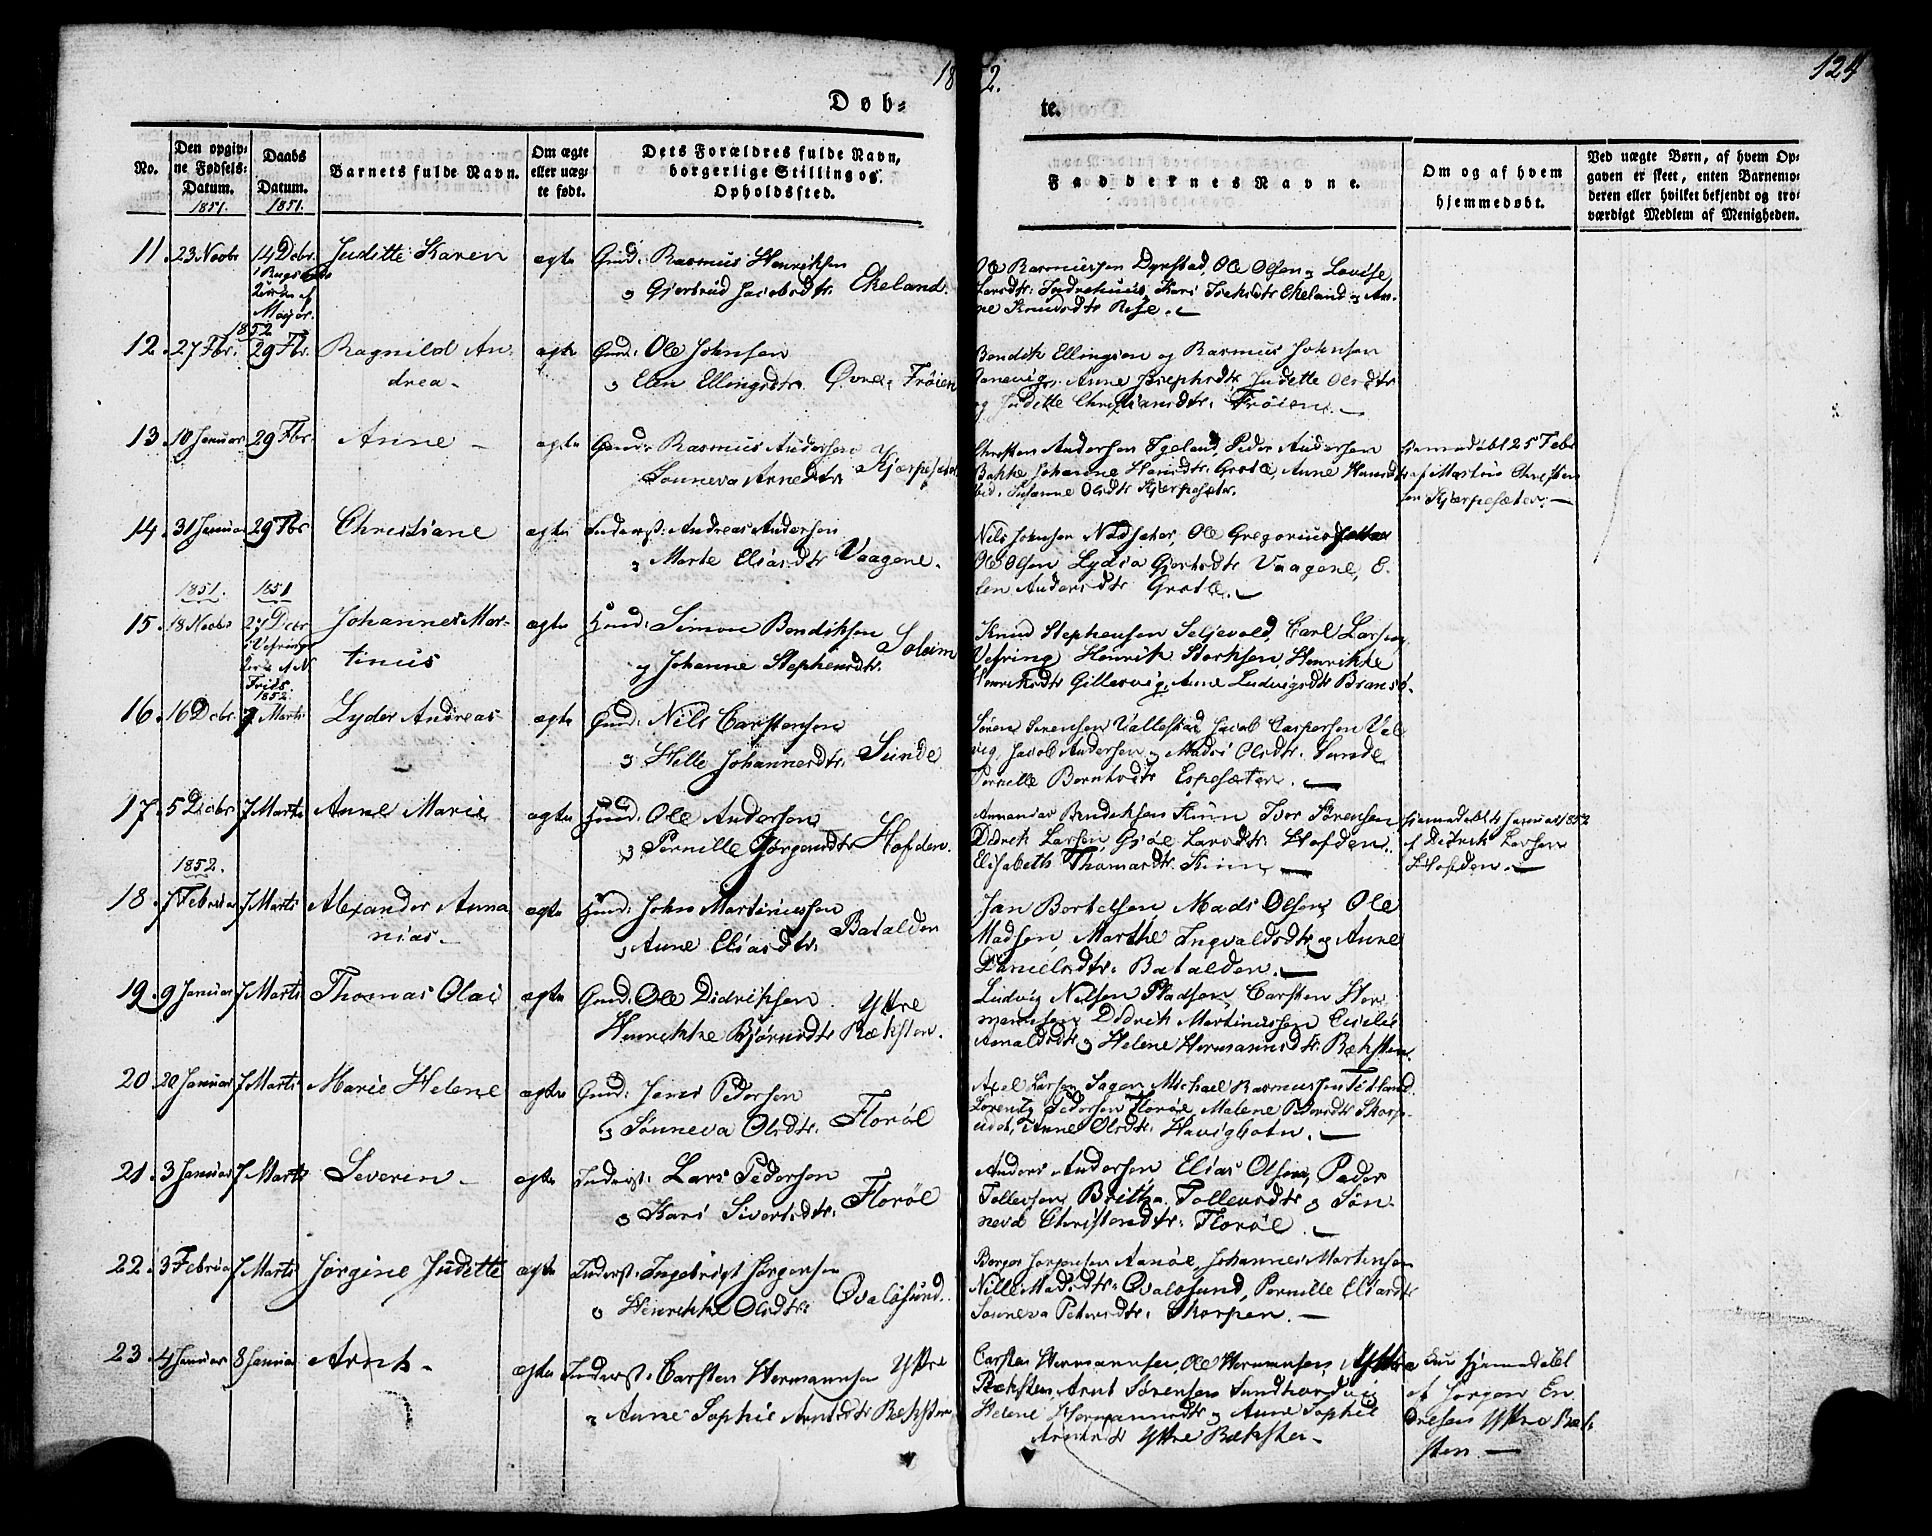 18 2.
124
Døb- te.
No.
Den opgiv-
ne Fødsels-
Datum.
1851.
Daabs
Datum.
1851.
Barnets fulde Navn.
Om ægte
eller uæg-
te født.
Dets Forældres fulde Navn,
borgerlige Stilling og
Opholdssted.
Faddernes Navne.
Om og af hvem
hjemmedøbt.
Ved uægte Børn, af hvem Op-
gaven er skeet, enten Barnemo-
deren eller hvilket bekjendt og tro-
værdigt Medlem af Menigheden.
11. 23 Novbr 14 Decbr Juditte Karen ægte Gmd: Rasmus Henriksen
Gjertrud Jacobsdtr. Ekeland.
Ole Rasmussen Dyrstad, Ole Olsen og Lovise
Larsdtr. Indrehuus, Kari Ekeland og An-
ne Knudsdtr Rise.
1852
12. 27 Fbr. 29 Fbr. Ragnild An-
drea
ægte Gmd: Ole Johnsen
Elen Ellingsdtr. Øvre Frøien
Bendik Ellingsen og Rasmus Johnsen
Anne Josephsdtr, Juditte Olsdtr
og Juditte Christiansdtr. Frøien.
13. 10 Januar 29 Fbr. Anne ægte Gmd: Rasmus Andersen
Sønneva Arnedtr. Kjærpesæter
Christen Andersen Egeland, Peder Andersen
Bakke, Johanne Hansdtr. Grotle, Anne Hansd
Susanne Olsdtr Kjærpesæter.
Hjemmedøbt 25 Febr
af Martin Christen
sen Kjærpesæter.
14. 31 Januar 29 Fbr Christiane ægte Inderst: Andreas Andersen
Marte Eliasdtr. Vaagene.
Nils Johnsen Nødsæter, Ole Gregoriussen
Ole Olsen Lydia Gjertsdtr Vaagene, E-
len Andersdtr Grotle.
1851. 1851
15. 18 Novbr 27 Decbr Johannes Mar-
tinus
ægte Huusd: Simon Bendiksen
og Johanne Stephensdtr. Soleim
Knud Stephensen Seljevold, Carl Larsen
Vefring Henrik Storksen, Henrikke
Henriksdtr Gillesvig, Anne Ludvigsdtr Bransø-
1852.
16. 16 Decbr. 7 Marts Lyder Andreas ægte Gmd: Nils Carstensen
Hille Johannesdtr. Sunde
Søren Sørensen Vallestad, Jacob Caspersen Val
vig, Jacob Andersen Madsi Olsdtr. Sunde
Pernille Berntsdtr Espesæter.
17. 5 Decbr 7 Marts Anne Marie ægte Huusd: Ole Andersen
Pernille Jørgensdtr Hofden.
Annanias Bendiksen Kinn Iver Sørensen
Didrik Larsen Gjøe Larsdtr. Hofden.
Elisabeth Thomasdtr. Kinn
Hjemmedøbt Januar 1852
af Didrik Larsen
Hofden.
1852.
18. 7 Februar 7 Marts Alexander Anna
nias
ægte Huusd: John Martinussen
Anne Eliasdtr. Batalden
Jan Bertelsen, Mads Olsen, Ole
Madsen, Marthe Ingvaldsdtr og Anne
Danielsdtr. Batalden.
19. 9 Januar 7 Marts Thomas Olai ægte Gmd: Ole Didriksen Yttre
Henrikke Bjørnsdtr Ræksten.
Ludvig Nelsen Stadsen, Carsten Her-
mannsen Didrik Martinussen
Arnoldsdtr Helene Hermannsdtr. Ræksten.
20. 20 Januar 7 Marts Marie Helene ægte Gmd: Jens Pedersen
Sønneva Olsdtr. Florøl
Axel Larsen Sagen Michael Rasmussen
Lorentz Pedersen Florøl, Malene Pedersdtr Skorp-
Anne Olsdtr. Havigbotn.
21. 3 Januar 7 Marts Severin ægte Inderst: Lars Pedersen
Kari Sivertsdtr. Florøl
Anders Andersen, Elias Olsen, Peder
Tollefsen, Britha Tollevsdtr og Søn-
neva Christensdtr. Florøl.
22. 3 Februar 7 Marts Jørgine Juditte ægte Inderst: Ingebrigt Jørgensen
Henrikke Olsdtr. Qvalosund.
Børger Jørgensen Aarøe, Johannes Mortensen
Nille Madsdtr. Qvalosund, Pernille Eliasdtr
Sønneva Petersdtr. Skorpen.
23. 4 Januar 8 Januar Arnt ægte Inderst: Carsten Hermannsen Yttre
Anne Sophie Arntsdtr Ræksten
Carsten Hermannsen, Ole Hermansen, Yttre
Ræksten Arnt Sørensen Sundhordvig
Helene Hermannsdtr og Anne Sophie
Arntsdt Yttre Ræksten
Hjemmedøbt
af Jørgen En
dresen Yttre Ræk-
sten.